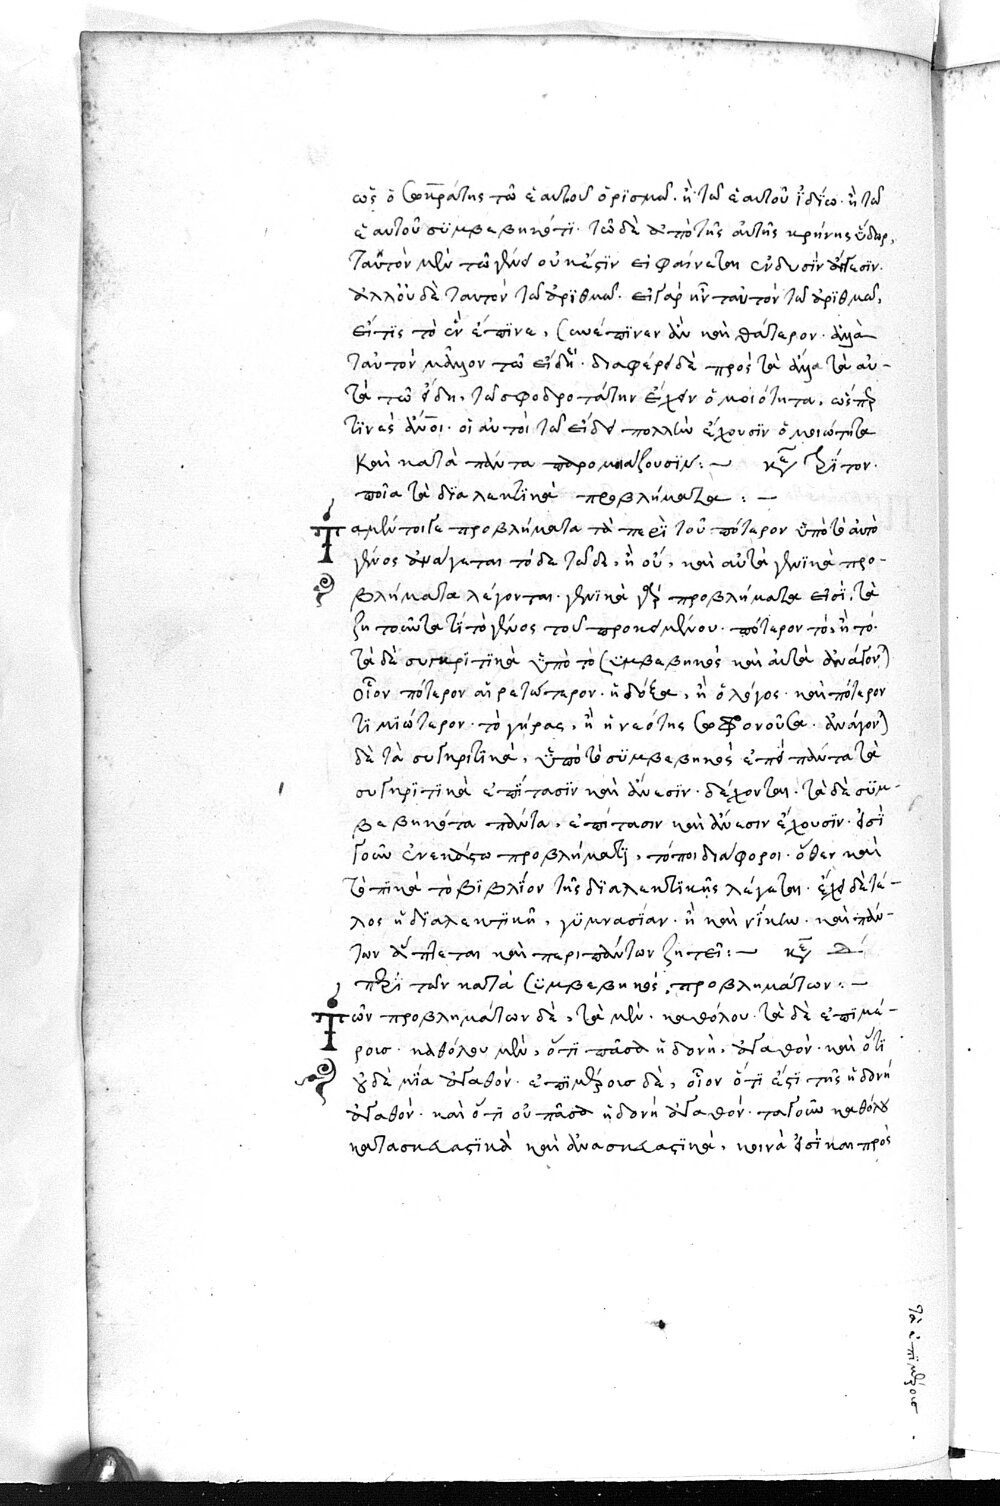 ὡς ὁ Σωκράτης τῶ ἑαυτοῦ ὁρϊσμῶ. ἢ τῶ ἑαυτοῦ ϊδίω. ἢ τῶ
ἑαυτοῦ συμβεβηκότι. τῶ δὲ ἀπὸ τῆς αὐτῆς κρήνης ὕδωρ,
ταὐτὸν μὲν τῶ γένει οὐκ ἔστιν εἰ φαίνεται
ἀλλ' οὐδὲ ταυτὸν τῶ ἀριθμῶ. εἰ γὰρ ἦν ταὐτὸν τῶ ἀριθμῶ,
εἴ τις τὸ ἓν ἔπινε, συνέπινεν ἂν καὶ θάτερον. ἀλλὰ
ταὐτὸν μᾶλλον τῶ εἴδει. διαφέρει δὲ πρὸς τὰ ἄλλα τὰ αὐ-
τὰ τῶ εἴδει, τῶ σφοδροτάτην ἔχειν ὁμοιότητα, ὥσπερ
τινὲς ἄνοι. οἱ αὐτοὶ τῶ εἴδει πολλὴν ἔχουσιν ὁμοιώτητα
καὶ κατὰ πάντα παρομοιάζουσιν: ~ κεφ τρίτον.
ποῖα τὰ διαλεκτικὰ προβλήματα: —
Τὰ μέντοιγε προβλήματα τὰ περὶ τοῦ πότερον ὑπὸ τὸ αὐτὸ
γένος ἀνάγεται τόδε τῶδε, ἢ οὐ, καὶ αὐτὰ γενικὰ προ-
βλήματα λέγονται. γενικὰ γὰρ προβλήματα εἰσὶ, τὰ
ζητοῦντα τί τὸ γένος τοῦ προκειμένου. πότερον τό, ἢ τό.
τὰ δὲ συγκριτικὰ ὑπὸ τὸ συμβεβηκὸς καὶ αὐτὰ ἀνάγοντ)
οἷον πότερον αἱρετώτερον. ἡ δόξα, ἢ ὁ λόγος. καὶ πότερον
τιμιώτερον. τὸ γήρας, ἢ ἡ νεότης σωφρονοῦσα. ἀνάγοντ)
δὲ τὰ συγκριτικὰ, ὑπὸ τὸ συμβεβηκὸς ἐπεὶ πάντα τὰ
συγκριτικὰ ἐπίτασιν καὶ ἄνεσιν. δέχονται. τὰ δὲ συμ-
βεβηκότα πάντα, ἐπίτασιν καὶ ἄνεσιν ἔχουσιν. εἰσὶ
γοῦν ἐν ἑκάστω προβλήματι, τόποι διάφοροι. ὅθεν καὶ
τοπικὰ τὸ βιβλίον τῆς διαλεκτικῆς λέγεται. ἔχει δὲ τέ-
λος ἡ διαλεκτικὴ, γυμνασίαν. ἢ καὶ νίκην. καὶ πάν-
των ἅπτεται καὶ περι πάντων ζητεῖ: ~ κεφ δ
περὶ τῶν κατὰ συμβεβηκὸς, προβλημάτων: —
Τῶν προβλημάτων δὲ, τὰ μὲν. καθόλου. τὰ δὲ ἐπιμέ-
ροισ. καθόλου μὲν, ὅτι πᾶσα ἡδονὴ, ἀγαθόν. καὶ ὅτι
οὐδεμία ἀγαθόν. ἐπιμέροισ δὲ, οἷον ὅτι ἐστὶ τὶς ἡδονή
ἀγαθόν. καὶ ὅτι οὐ πᾶσα ἡδονή ἀγαθόν. τὰ γοῦν καθόλου
κατασκευαστικὰ καὶ ἀνασκευαστικὰ, κοινά εἰσὶ καὶ πρὸς
τὰ ἐπιμέροισ